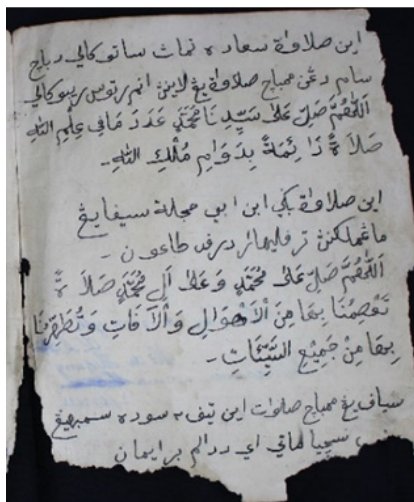 اين صلاواة سعادة تمات ساتو کالي دباچ
سام دڠن ممباچ صلاواة يڠ لاينڽ انم راتوس ريبو کالي
اَللّٰهُمَّ صَلِّ عَلٰى سَيِّدِنَا مُحَمَّدٍ عَدَدَ مَا فِي عِلْمِ اللهِ
صَلَاةً دَائِمَةً بِدَوَامِ مُلْكِ اللهِ ـ
اين صلاواة بکي ابن ابي مجلة سيفايڠ
مڠعملکنڽ ترفليهارا درفد طاعون ـ
اَللّٰهُمَّ صَلِّ عَلٰى مُحَمَّدٍ وَعَلٰى آلِ مُحَمَّدٍ صَلَاةً
تَعْصِمُنَا بِهَا مِنَ الْأَهْوَالِ وَالْآفَاتِ وَتُطَهِّرُنَا
بِهَا مِنْ جَمِيْعِ السَّيِّئَاتِ ـ
سياف يڠ ممباچ صلوات اين تيف٢ سوده سمبهيڠ
سچيا ماتي اي دالم برايمان